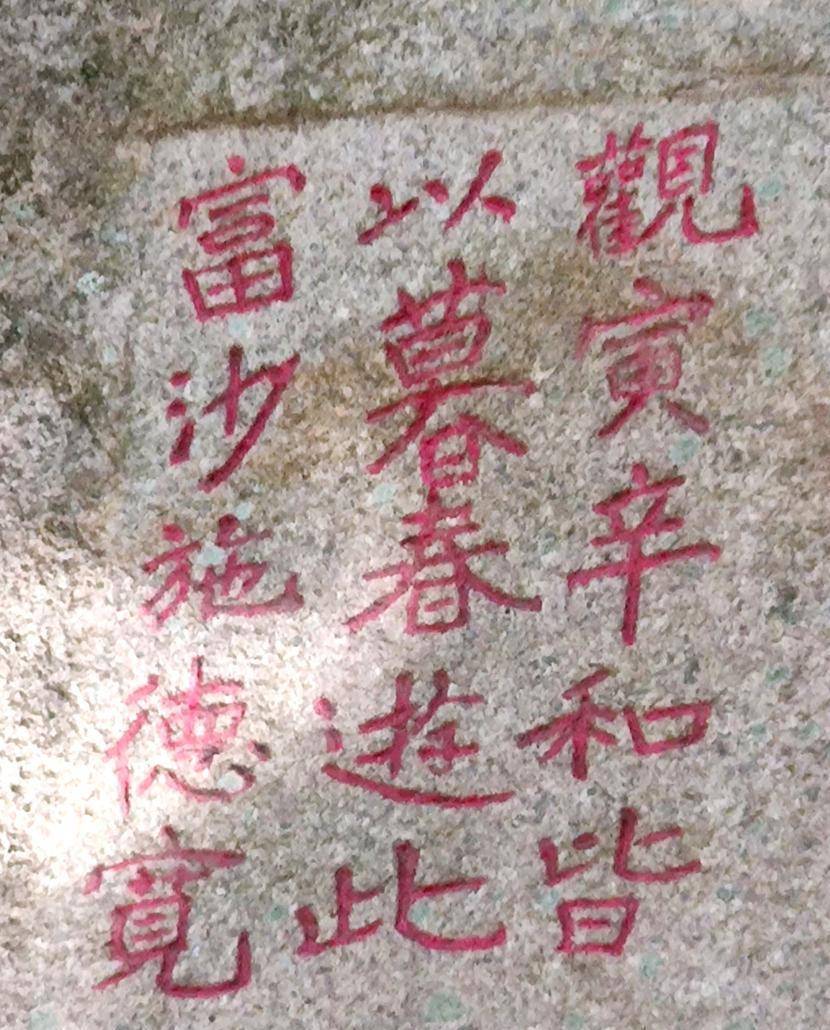 觀寅辛和皆
以暮春遊此
富沙施德寬